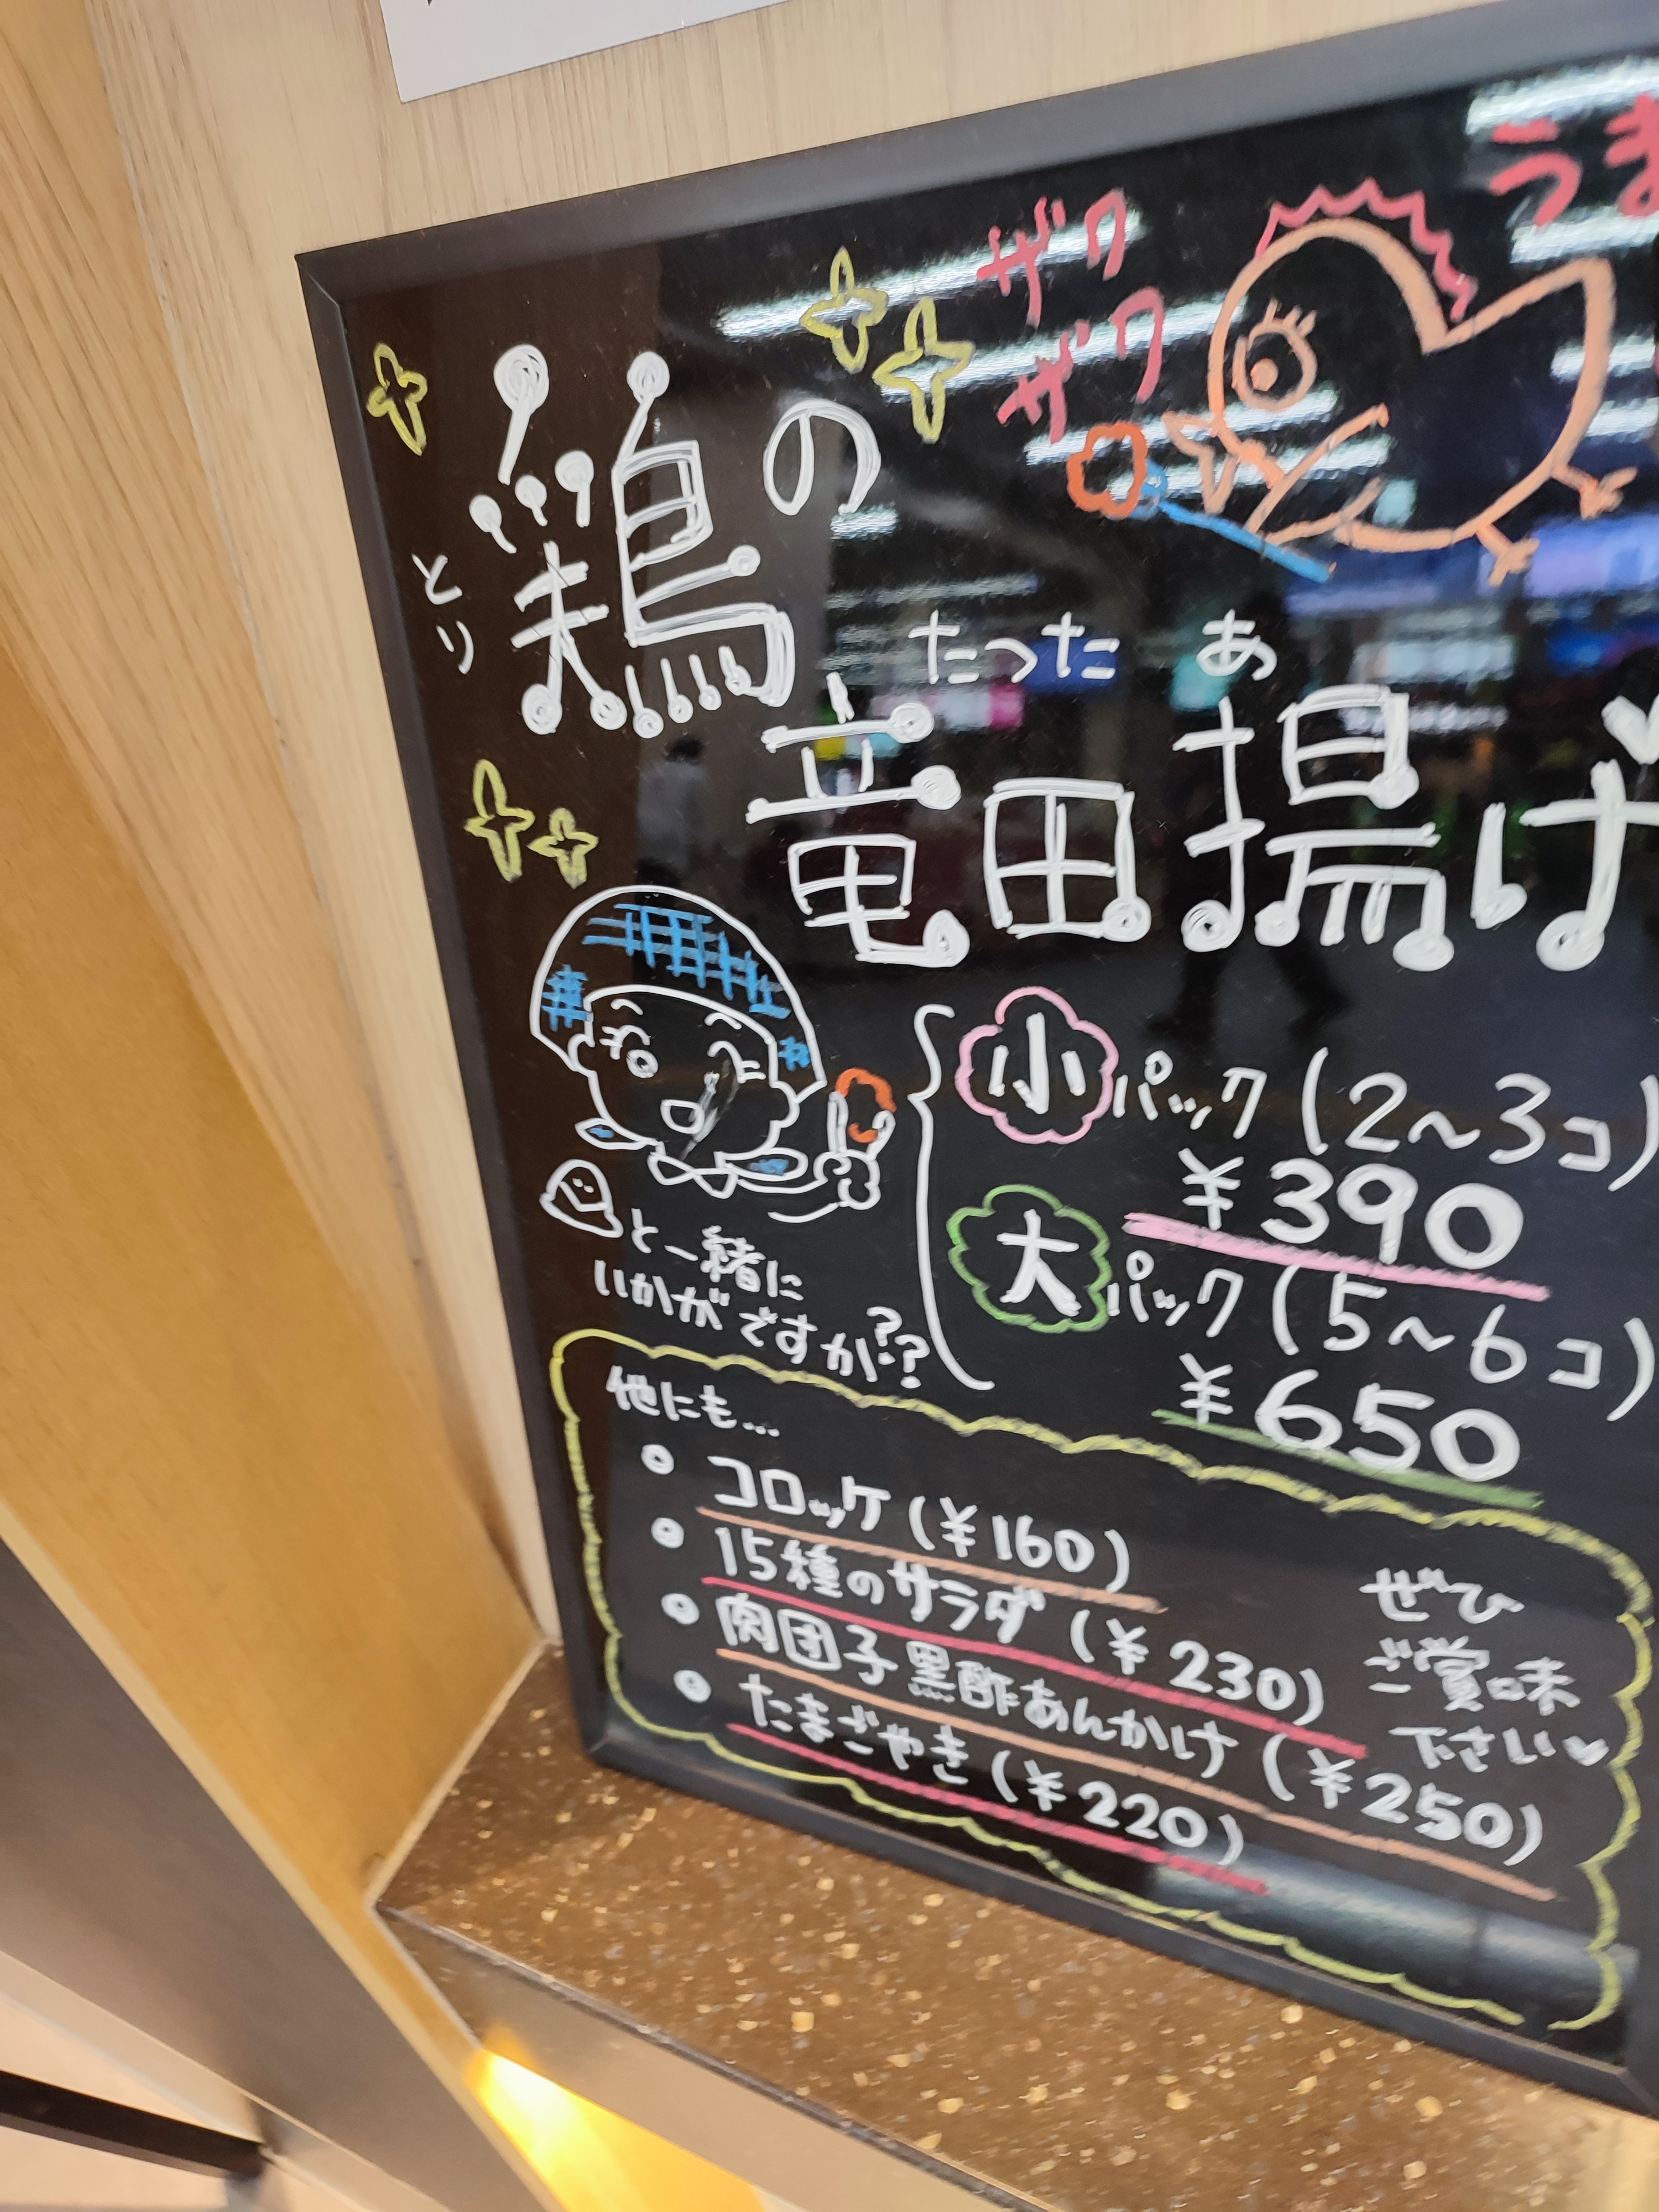 うま
ザク
ザク
鶏の
とり
たつた あ
竜田揚げ
小パック(2〜3コ)
¥390
大パック(5〜6コ)
¥650
と一緒に
いかがですか??
他にも...
コロッケ(¥160)
15種のサラダ(¥230)
肉団子黒酢あんかけ(¥250)
たまごやき(¥220)
ぜひ
ご賞味
下さい